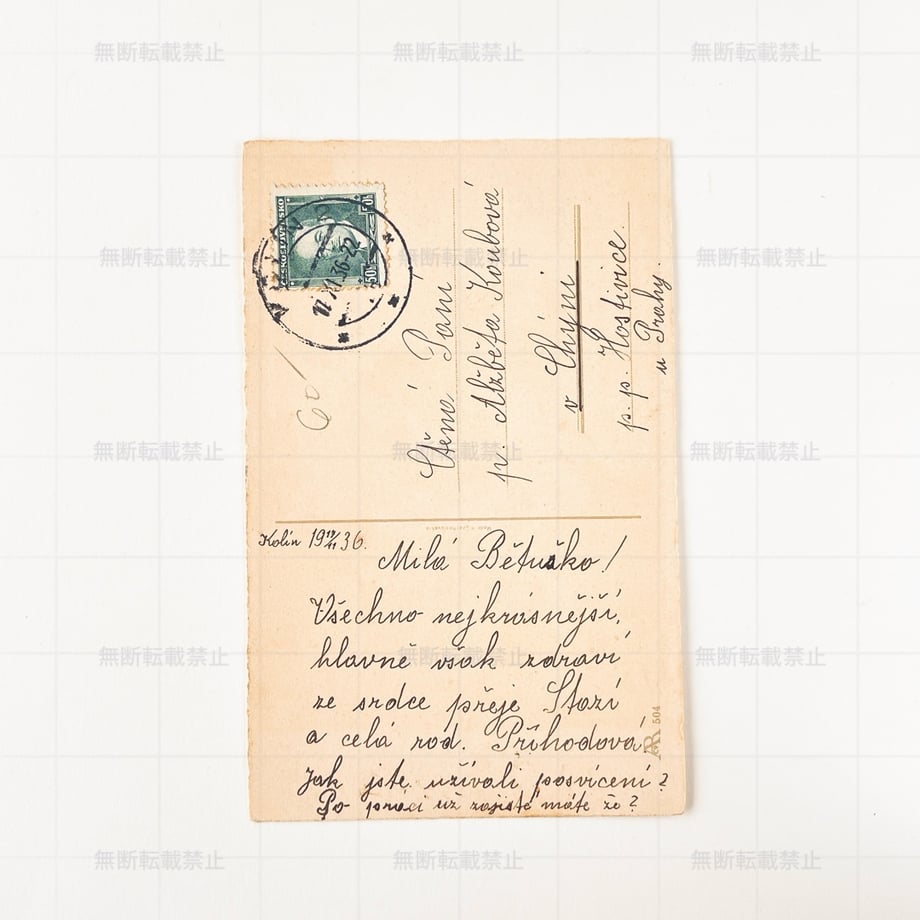 Kolín 19 17/11 36.
Milá Bětuško!
Všechno nejkrásnější,
hlavně však zdraví
ze srdce přeje Stazi
a celá rod. Příhodová.
Jak jste užívali posvícení?
Po práci už zajisté máte že?
Ctěná Paní
p. Alžběta Koubová
v Chýni
p. p. Hostivice
u Prahy.
60
ČESKOSLOVENSKO
50
50
XI.36-22
504
無断転載禁止 無断転載禁止 無断転載禁止
無断転載禁止 無断転載禁止 無断転載禁止
無断転載禁止 無断転載禁止 無断転載禁止
無断転載禁止 無断転載禁止 無断転載禁止
無断転載禁止 無断転載禁止 無断転載禁止